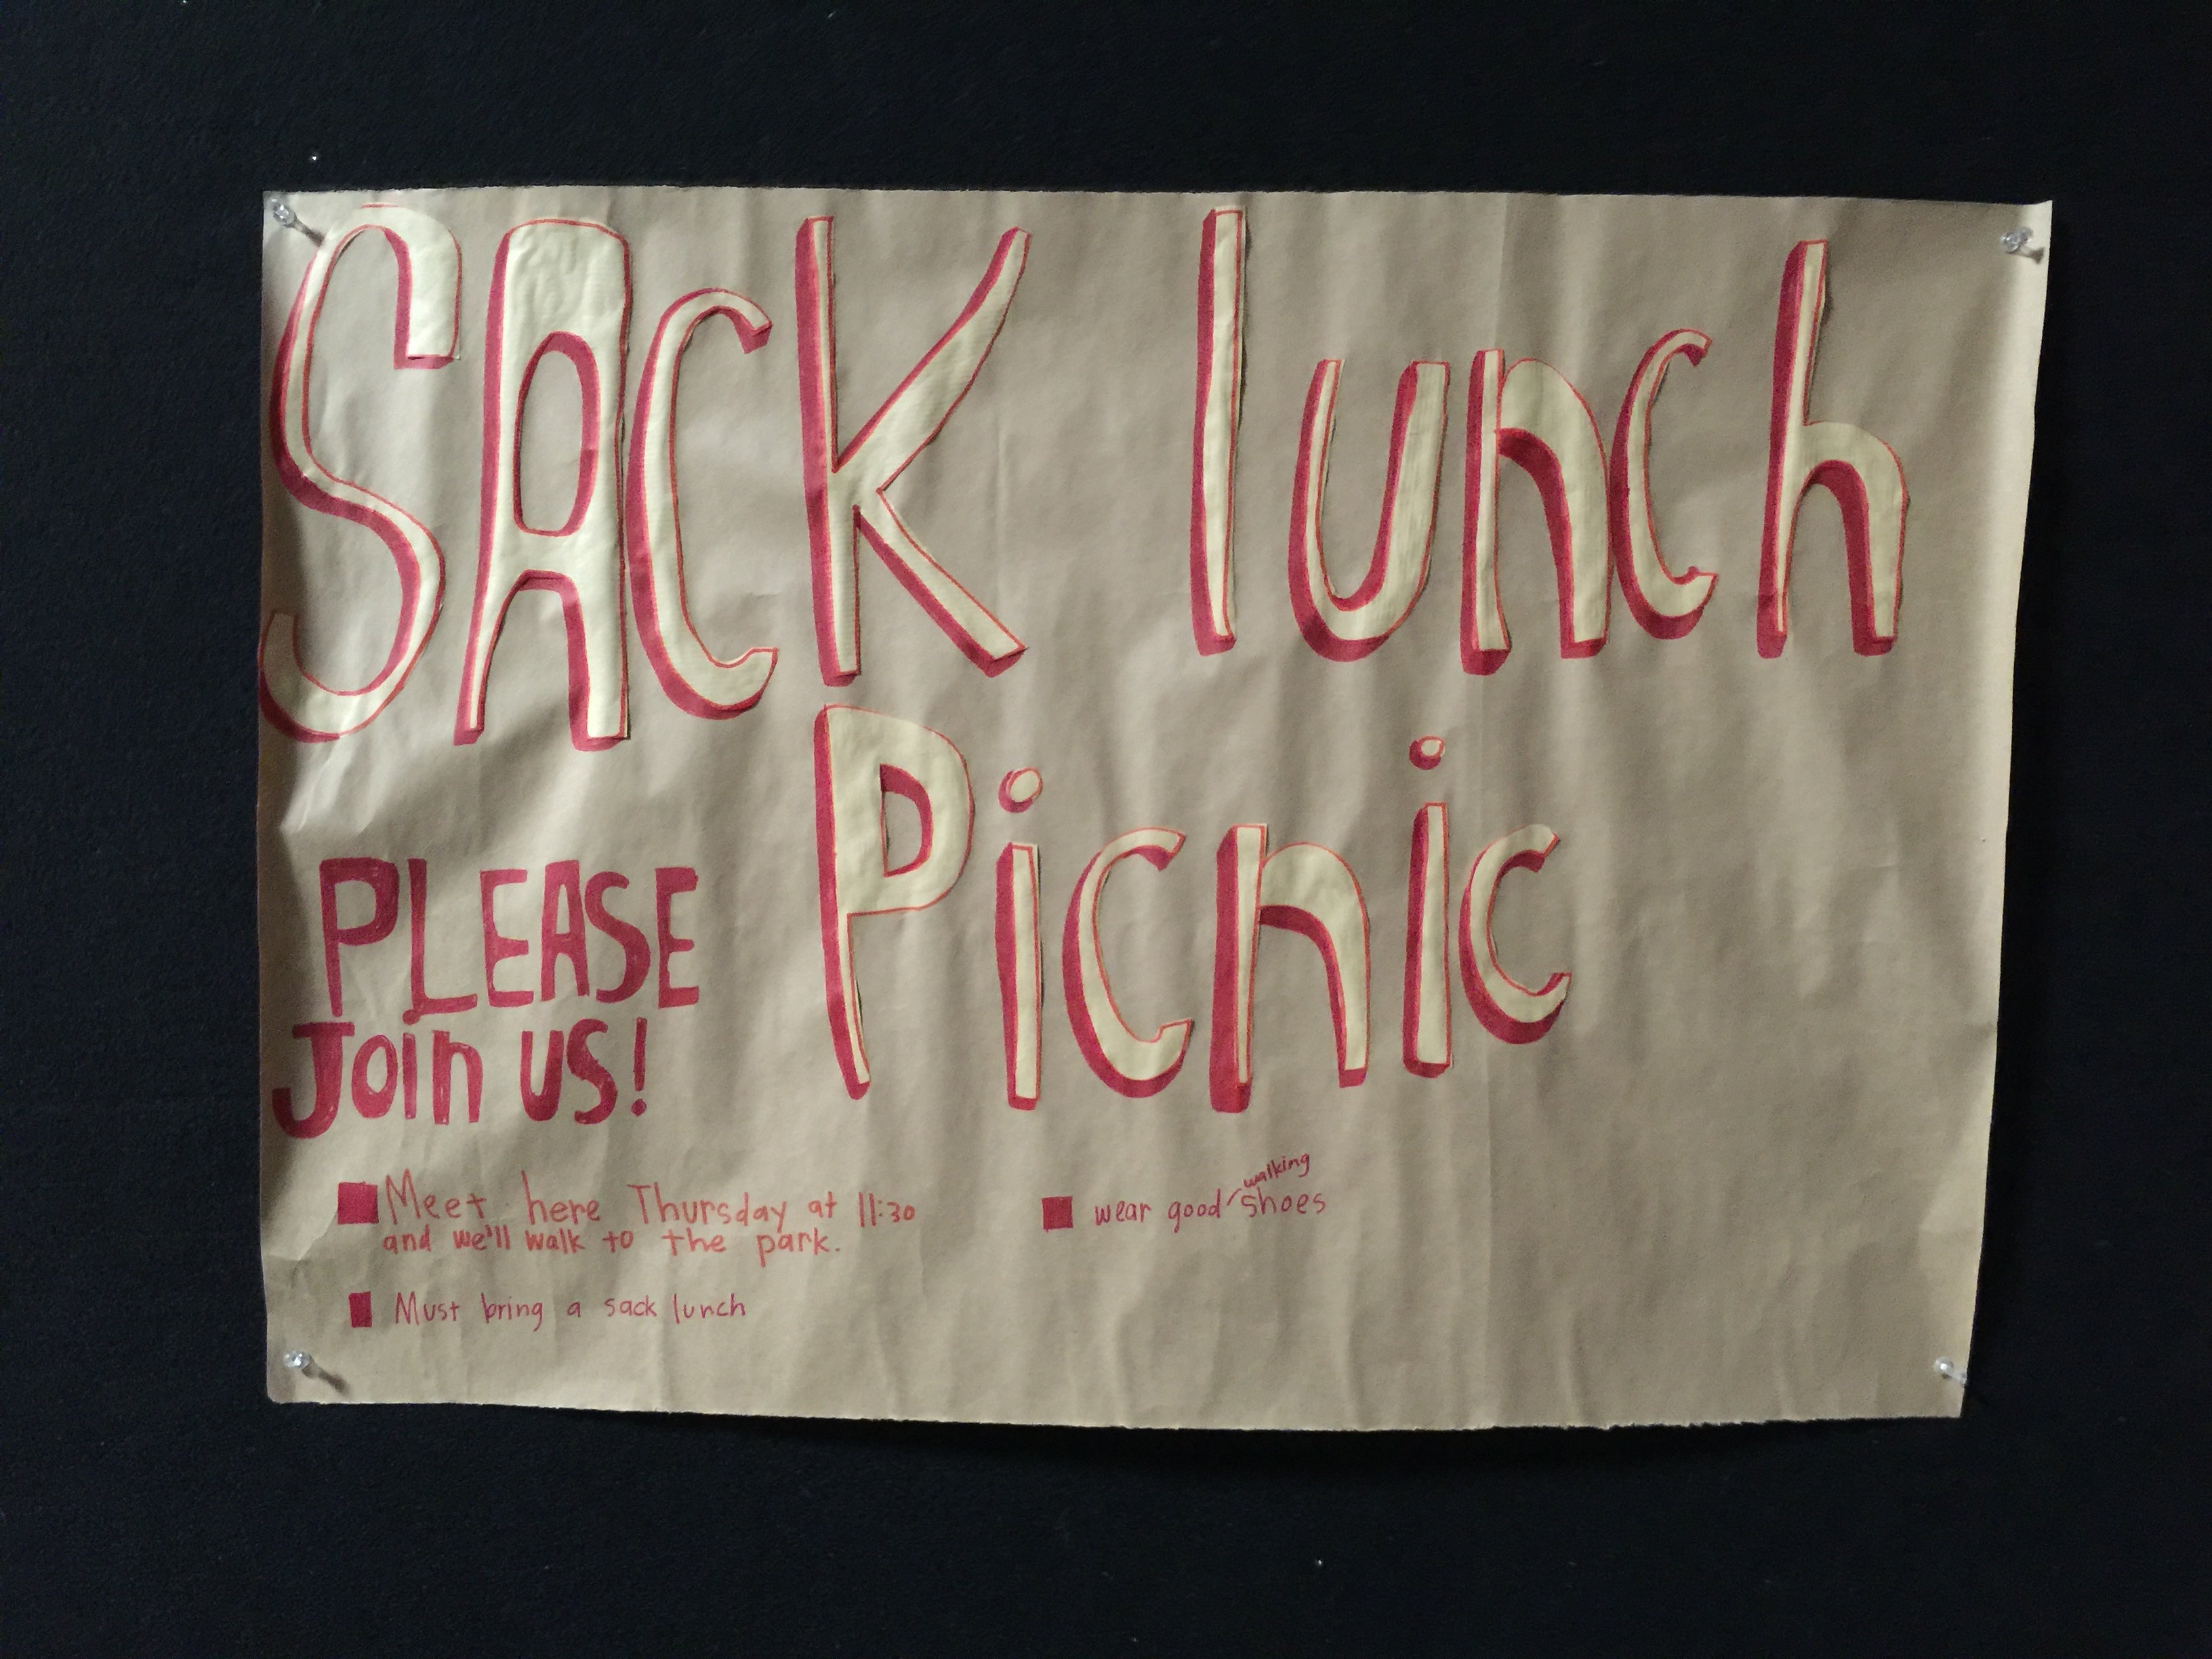 SACK lunch
Picnic
PLEASE
Join us!
Meet here Thursday at 11:30
and we'll walk to the park.
Must bring a sack lunch
wear good walking shoes